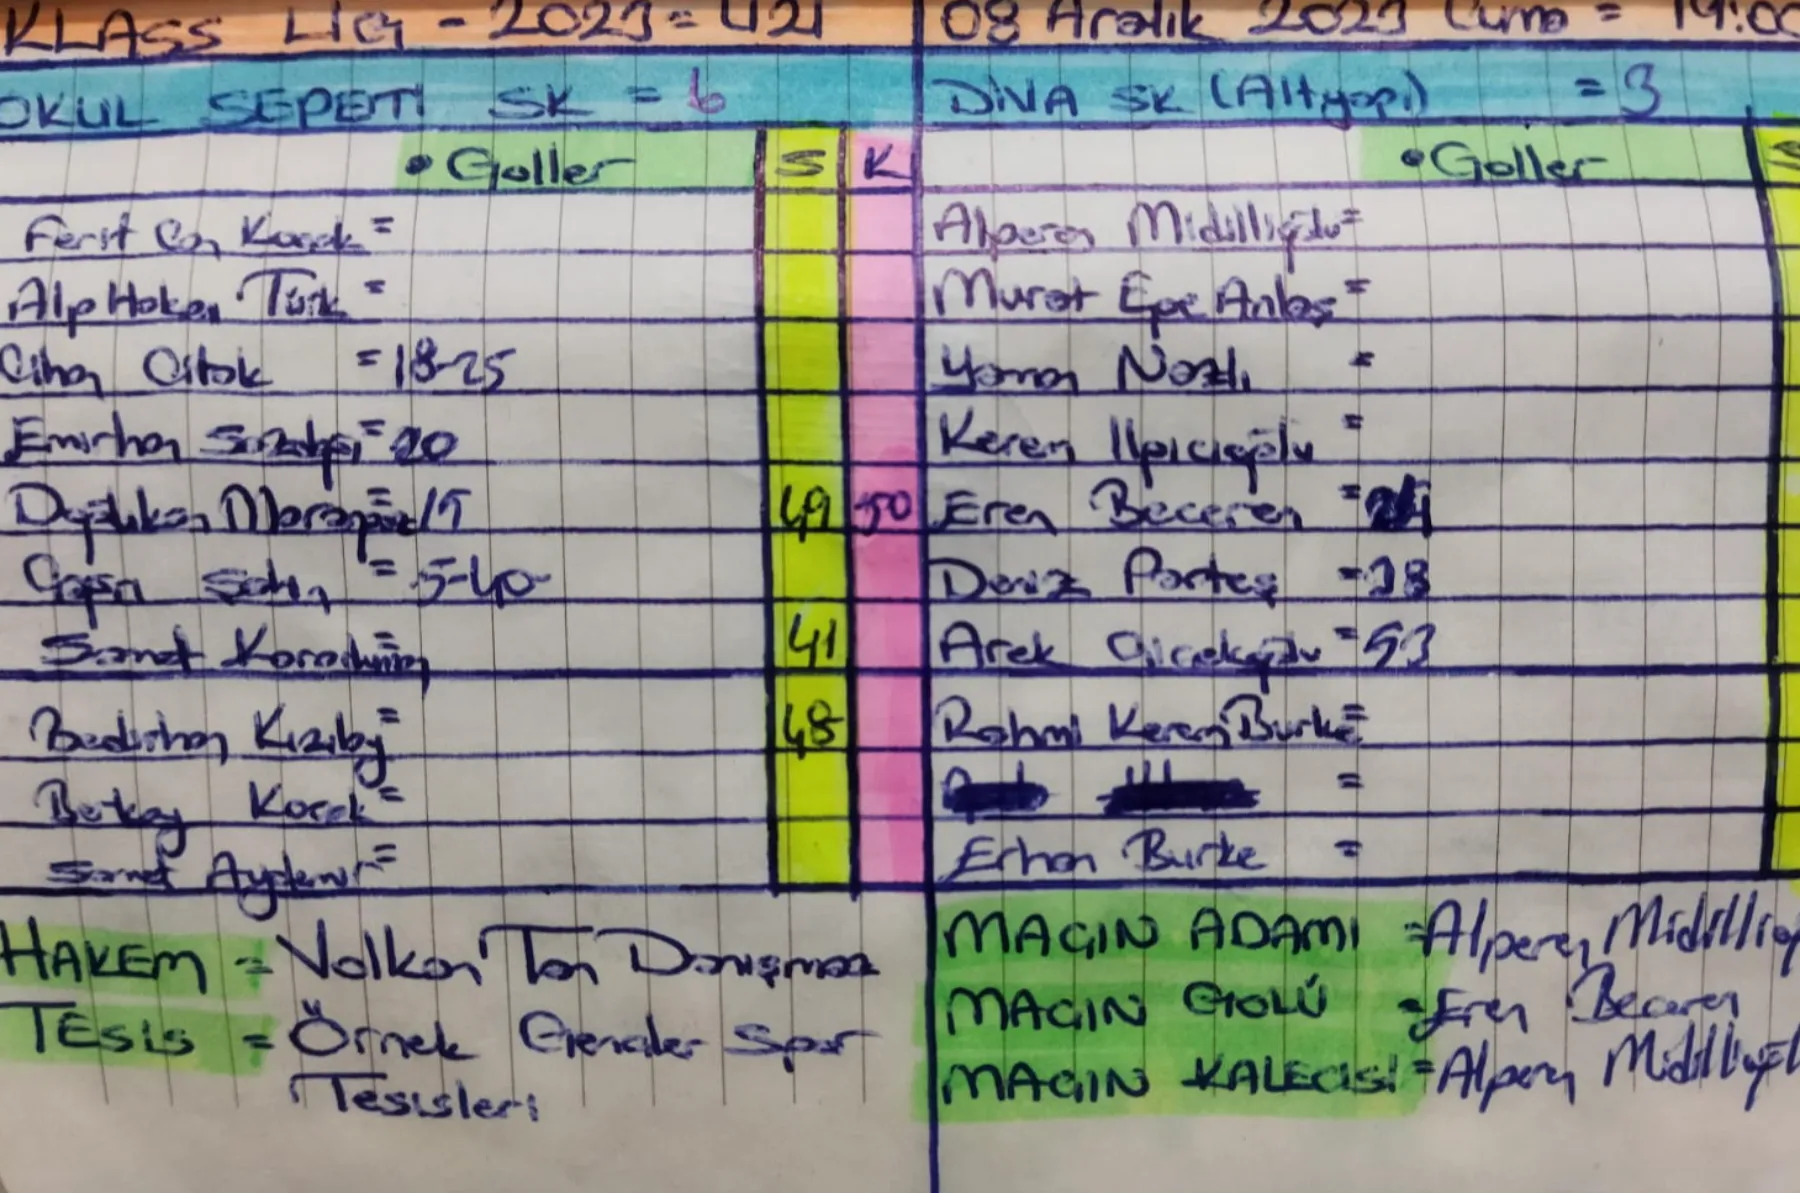 KLASS LİG - 2023 = 421
08 Aralık 2023 Cuma = 19:00
OKUL SEPETİ SK = 6
DİVA SK (Altyapı) = 3
• Goller S K
• Goller S
Ferit Can Kocak =
Alperen Midillioğlu =
Alp Hakan Türk =
Murat Ege Anbaş =
Cihan Citak = 18-25
Yaman Nazlı =
Emirhan = 20
Kerem Ilpıcıoğlu =
= 15 49 50
Eren Beceren =
Çağan Şahin = 5-40
Deniz Parteş = 28
Samet Karaduman = 41
Arek Çiçekoğlu = 53
Bedirhan Kızılay = 48
Rahmi Kerem Burke =
Berkay Kocak =
=
Samet Aydemir =
Erhan Burke =
HAKEM = Volkan Tan Danışmaz
TESİS = Örnek Gençler Spor
Tesisleri
MAÇIN ADAMI = Alperen
MAÇIN GOLÜ = Eren Beceren
MAÇIN KALECİSİ = Alperen